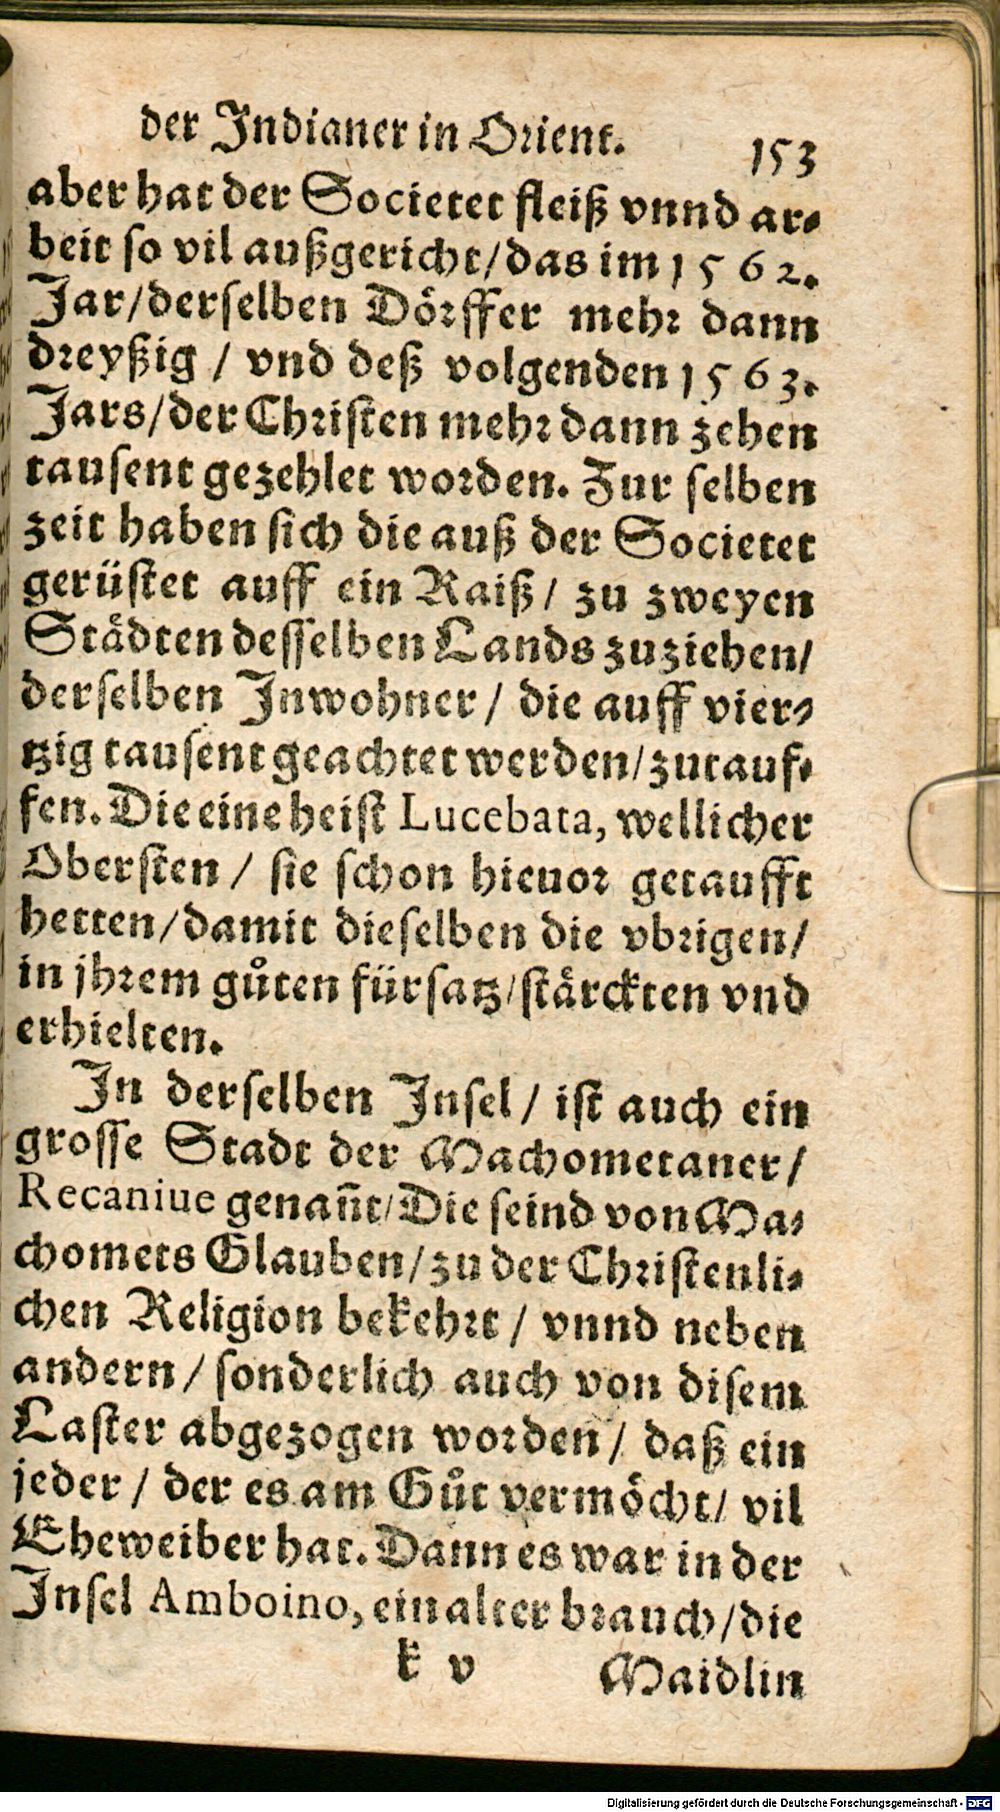 der Indianer in Orient. 153
aber hat der Societet fleiß vnnd ar-
beit so vil außgericht/das im 1562.
Jar/derselben Dörffer mehr dann
dreyßig / vnd deß volgenden 1563.
Jars/der Christen mehr dann zehen
tausent gezehlet worden. Zur selben
zeit haben sich die auß der Societet
gerüstet auff ein Raiß / zu zweyen
Städten desselben Lands zuziehen/
derselben Inwohner / die auff vier-
tzig tausent geachtet werden/zutauf-
fen. Die eine heist Lucebata, wellicher
Obersten / sie schon hieuor getaufft
hetten/damit dieselben die vbrigen/
in jhrem gůten fürsatz/stärckten vnd
erhielten.
In derselben Insel / ist auch ein
grosse Stadt der Machometaner/
Recaniue genañt/Die seind von Ma-
chomets Glauben/zu der Christenli-
chen Religion bekehrt / vnnd neben
andern / sonderlich auch von disem
Laster abgezogen worden / daß ein
jeder / der es am Gůt vermöcht/ vil
Eheweiber hat. Dann es war in der
Insel Amboino, ein alter brauch/die
k v Maidlin
Digitalisierung gefördert durch die Deutsche Forschungsgemeinschaft - DFG